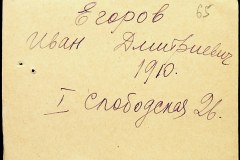 Егоров 65
Иван Дмитриевич
1910.
I Слободская 26.